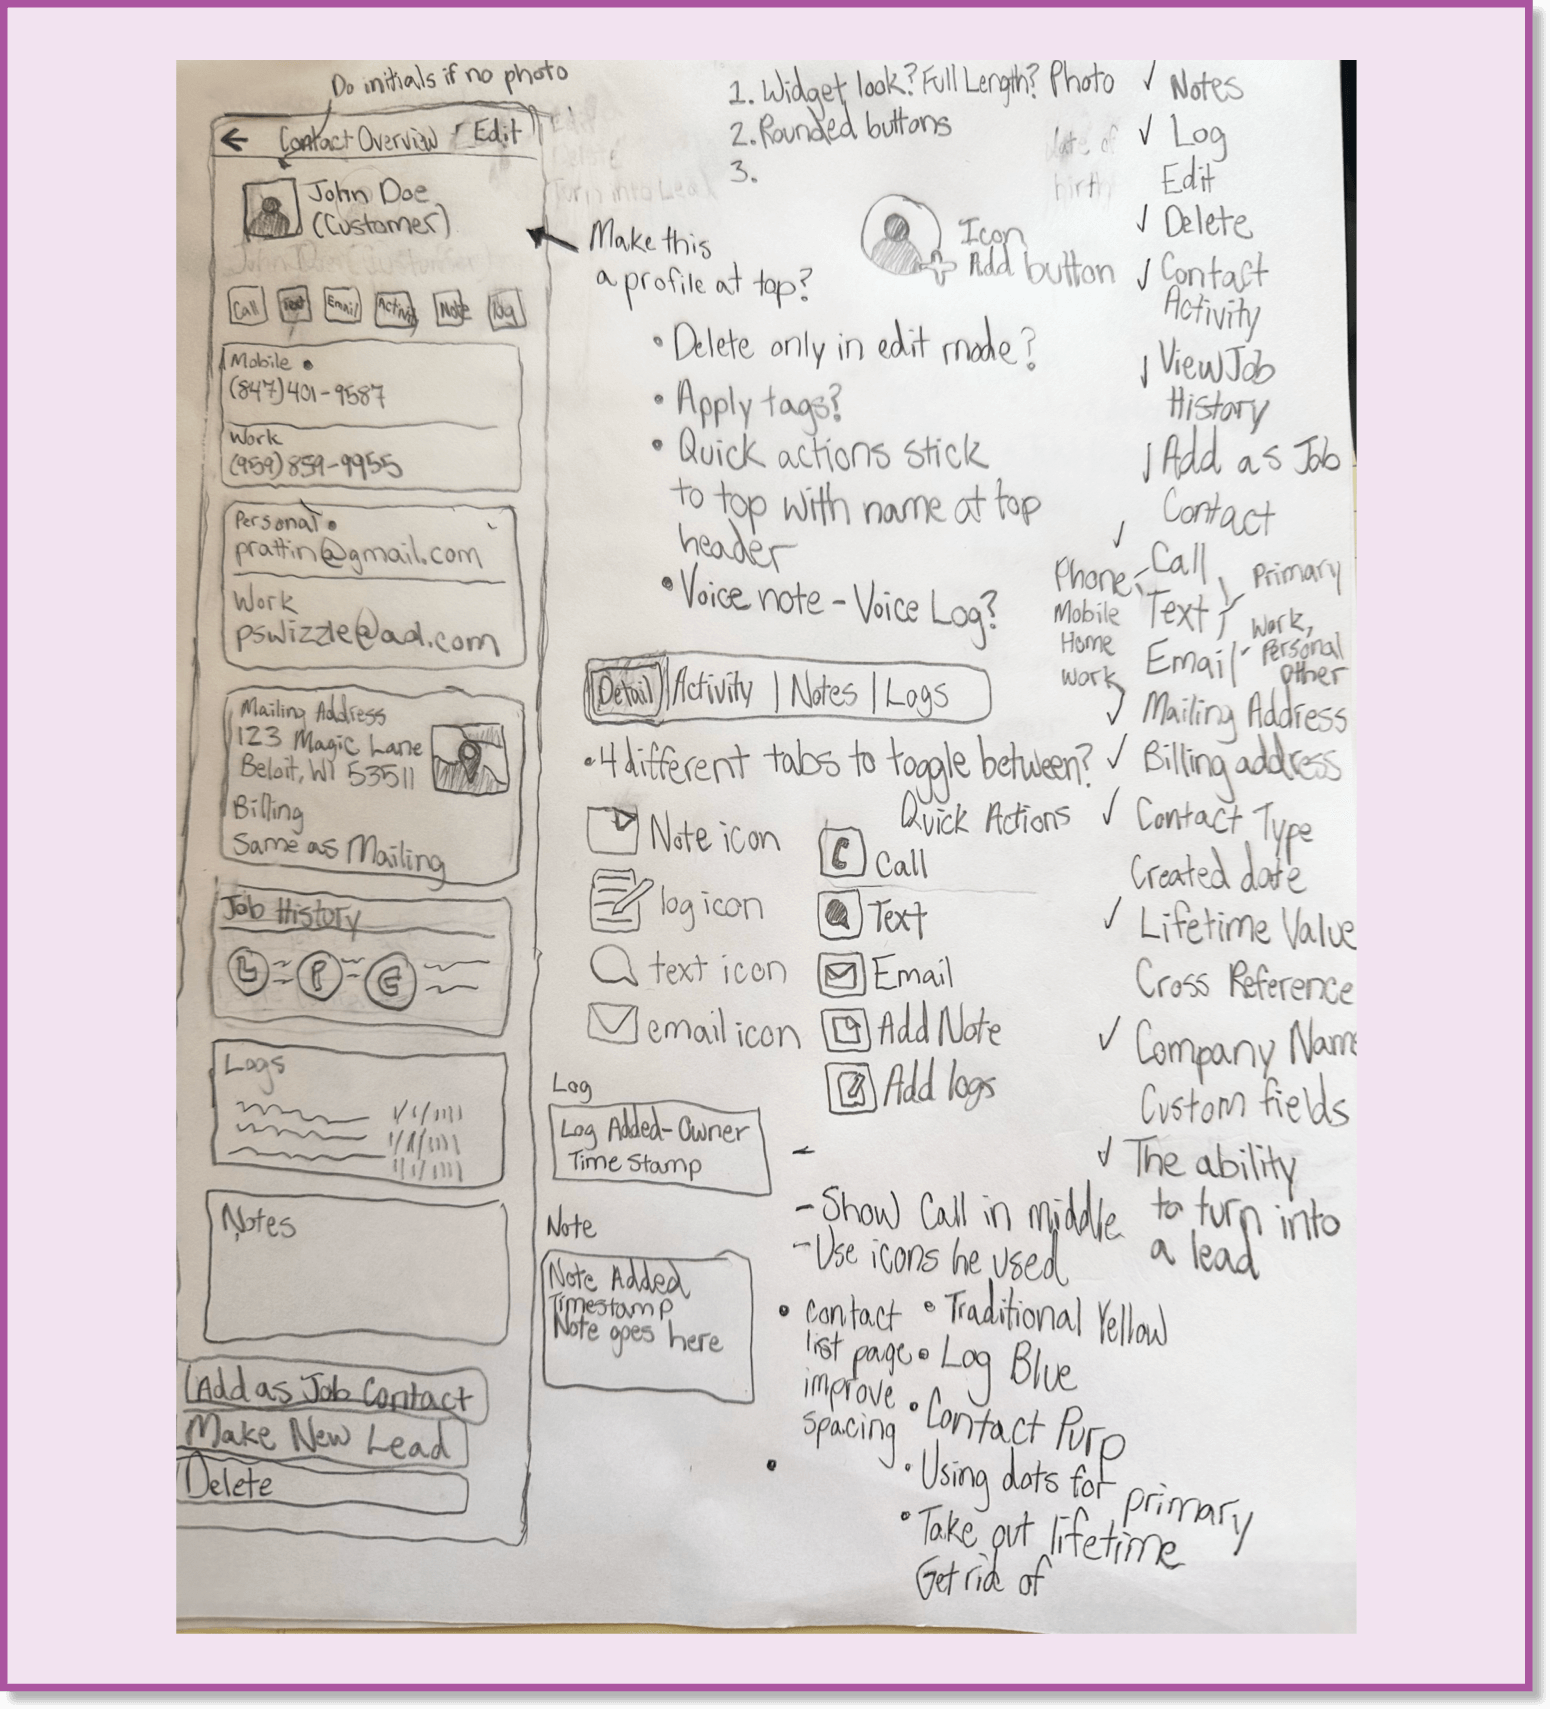 Do initials if no photo
← Contact Overview / Edit
John Doe
(Customer)
Call Text Email Activity Note log
Mobile •
(847)401-9587
Work
(959)859-9955
Personal •
prattin@gmail.com
Work
pswizzle@aol.com
Mailing Address
123 Magic Lane
Beloit, WI 53511
Billing
Same as Mailing
Job History
L P E
Logs
Notes
Add as Job Contact
Make New Lead
Delete
1. Widget look? Full Length? Photo
2. Rounded buttons
3.
Edit
Delete
Turn into Lead
date of
birth
Make this
a profile at top?
Icon
Add button
• Delete only in edit mode?
• Apply tags?
• Quick actions stick
to top with name at top
header
• Voice note - Voice Log?
Detail | Activity | Notes | Logs
• 4 different tabs to toggle between?
Note icon
log icon
text icon
email icon
Quick Actions
Call
Text
Email
Add Note
Add logs
Log
Log Added - Owner
Time Stamp
Note
Note Added
Timestamp
Note goes here
-
- Show Call in middle
- Use icons he used
• contact
list page
improve
spacing
•
• Traditional Yellow
• Log Blue
• Contact Purp
• Using dots for primary
• Take out lifetime
Get rid of
✓ Notes
✓ Log
Edit
✓ Delete
✓ Contact
Activity
✓ View Job
History
✓ Add as Job
Contact
✓
Phone - Call
Mobile
Home
Work
Text
Email
Primary
Work,
Personal
Other
✓ Mailing Address
✓ Billing address
✓ Contact Type
Created date
✓ Lifetime Value
Cross Reference
✓ Company Name
Custom fields
✓ The ability
to turn into
a lead